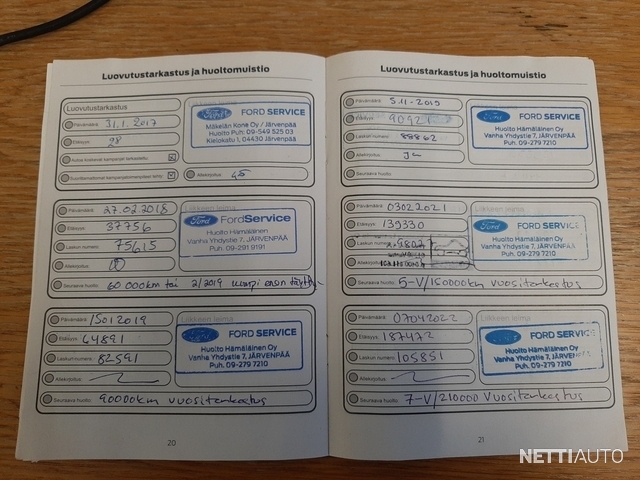 Luovutustarkastus ja huoltomuistio
Luovutustarkastus
Päivämäärä: 31.1.2017
Etäisyys: 28
Allekirjoitus:
Ford FORD SERVICE
Mäkelän Kone Oy / Järvenpää
Huolto Puh. 09-549 525 03
Kielokatu 1, 04430 Järvenpää
Päivämäärä: 27.02.2018
Etäisyys: 37756
Laskun numero: 75615
Allekirjoitus:
Liikkeen leima
Ford FordService
Huolto Hämäläinen
Vanha Yhdystie 7, JÄRVENPÄÄ
Puh. 09-291 9191
Seuraava huolto: 60 000km tai 2/2019 kumpi ensin täyttyy
Päivämäärä: 15012019
Etäisyys: 64891
Laskun numero: 82591
Allekirjoitus:
Liikkeen leima
Ford FORD SERVICE
Huolto Hämäläinen Oy
Vanha Yhdystie 7, JÄRVENPÄÄ
Puh. 09-279 7210
Seuraava huolto: 90000km vuositarkastus
20
Luovutustarkastus ja huoltomuistio
Päivämäärä: 5.11-2019
Etäisyys: 90921
Laskun numero: 88862
Allekirjoitus:
Ford FORD SERVICE
Huolto Hämäläinen Oy
Vanha Yhdystie 7, JÄRVENPÄÄ
Puh. 09-279 7210
Seuraava huolto:
Päivämäärä: 03022021
Etäisyys: 139330
Laskun numero:
Allekirjoitus:
Liikkeen leima
Ford FORD SERVICE
Huolto Hämäläinen Oy
Vanha Yhdystie 7, JÄRVENPÄÄ
Puh. 09-279 7210
Seuraava huolto: 5-V/150000km vuositarkastus
Päivämäärä: 07042022
Etäisyys: 187472
Laskun numero: 105851
Allekirjoitus:
Liikkeen leima
FORD SERVICE
Huolto Hämäläinen Oy
Vanha Yhdystie 7, JÄRVENPÄÄ
Puh. 09-279 7210
Seuraava huolto: 7-V/210000 Vuositarkastus
21
NETTIAUTO